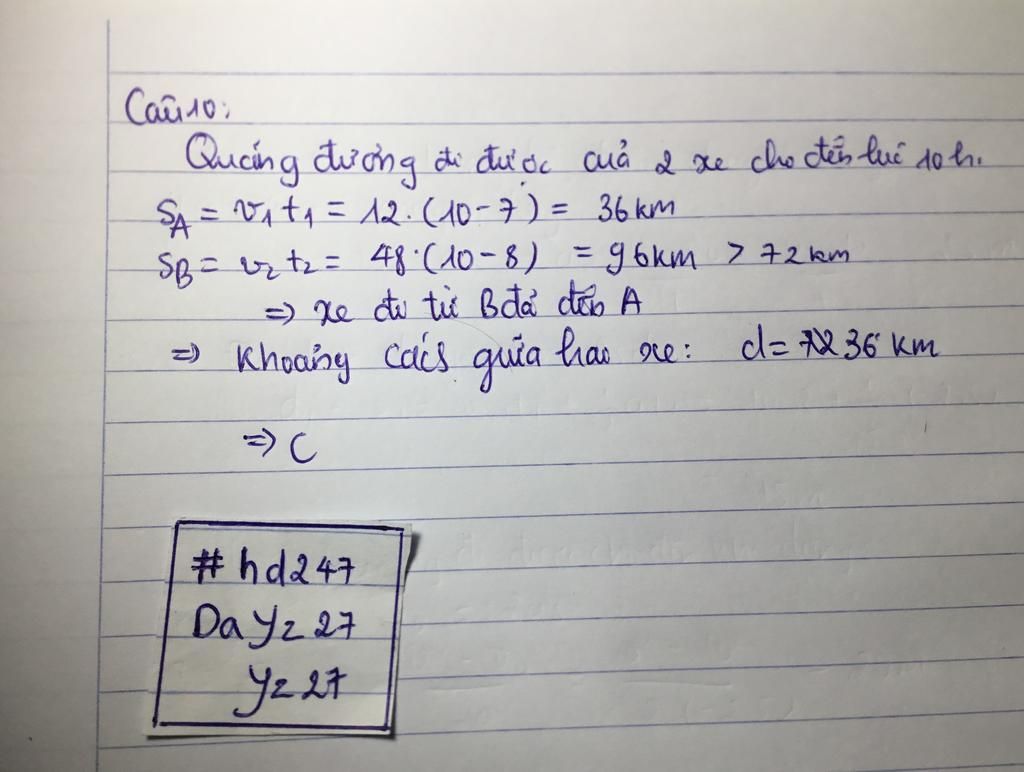 Câu 10:
Quãng đường đi được của 2 xe cho đến lúc 10h.
S_A = v₁t₁ = 12.(10-7) = 36km
S_B = v₂t₂ = 48.(10-8) = 96km > 72km
=> xe đi từ B đã đến A
=> Khoảng cács giữa hai xe: d = 36 km
=> C
#hd247
Dayz27
Yz27